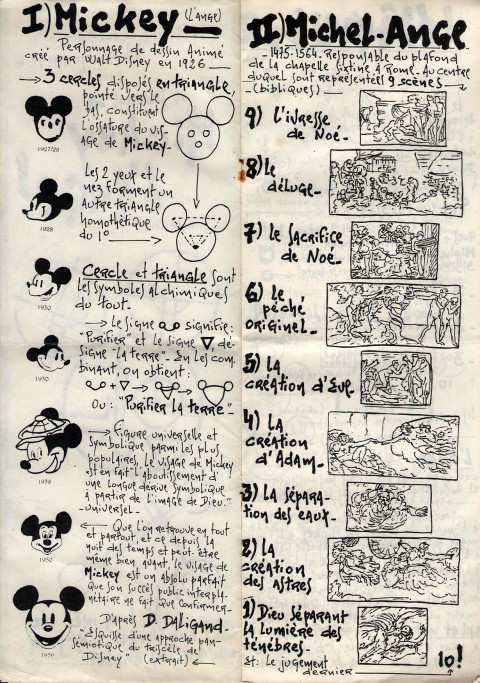 I) Mickey (L'ANGE)
Personnage de dessin Animé
créé par Walt Disney en 1926
→ 3 cercles disposés en triangle,
pointé vers le
bas, constituent
l'ossature du vis-
age de Mickey-
1927/28
Les 2 yeux et le
nez forment un
autre triangle
homothétique
du 1°
1928
Cercle et triangle sont
les symboles alchimiques
du tout.
1930
→ le signe signifie:
"Purifier" et le signe ▽ dé-
signe "la terre"- En les com-
binant, on obtient:
1930
+ ▽ → →
Ou: "Purifier la terre"-
→ Figure universelle et
symbolique parmi les plus
populaires, le visage de Mickey
est en fait l'aboutissement d'
une longue dérive symbolique
à partir de l'image de Dieu."-
-universel-
1938
Que l'on retrouve en tout
et partout, et ce depuis la
nuit des temps et peut-être
même bien avant, le visage de
Mickey est un absolu parfait
que son succès public interpla-
nétaire ne fait que confirmer-
1950
D'après D. Daligand-
"Esquisse d'une approche pan-
sémiotique du triscèle de
Disney" (extrait) ←
II) Michel-Ange
-1475-1564. Responsable du plafond
de la chapelle Sixtine à Rome. Au centre
duquel sont représentées 9 scènes
-(bibliques)
9) l'ivresse
de Noé-
8) le
déluge-
7) le sacrifice
de Noé-
6) le
péché
originel-
5) la
création d'Eve-
4) la
création
d'Adam-
3) la sépara-
tion des eaux-
2) la
création
des astres
1) Dieu séparant
la lumière des
ténèbres-
Et: le jugement
dernier
10!